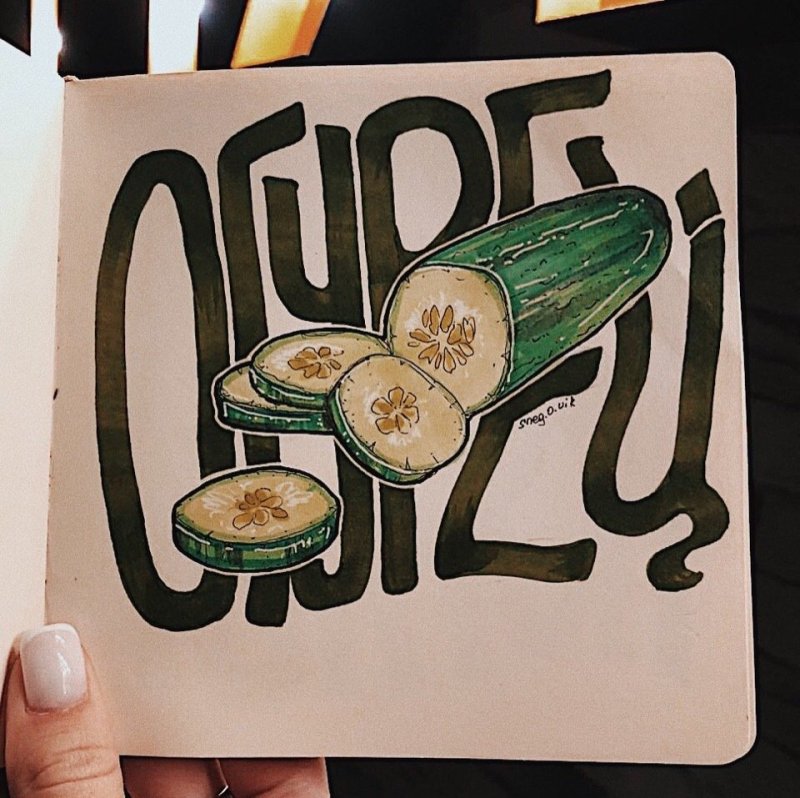 ОГУРЕЦ
sneg.o.vik